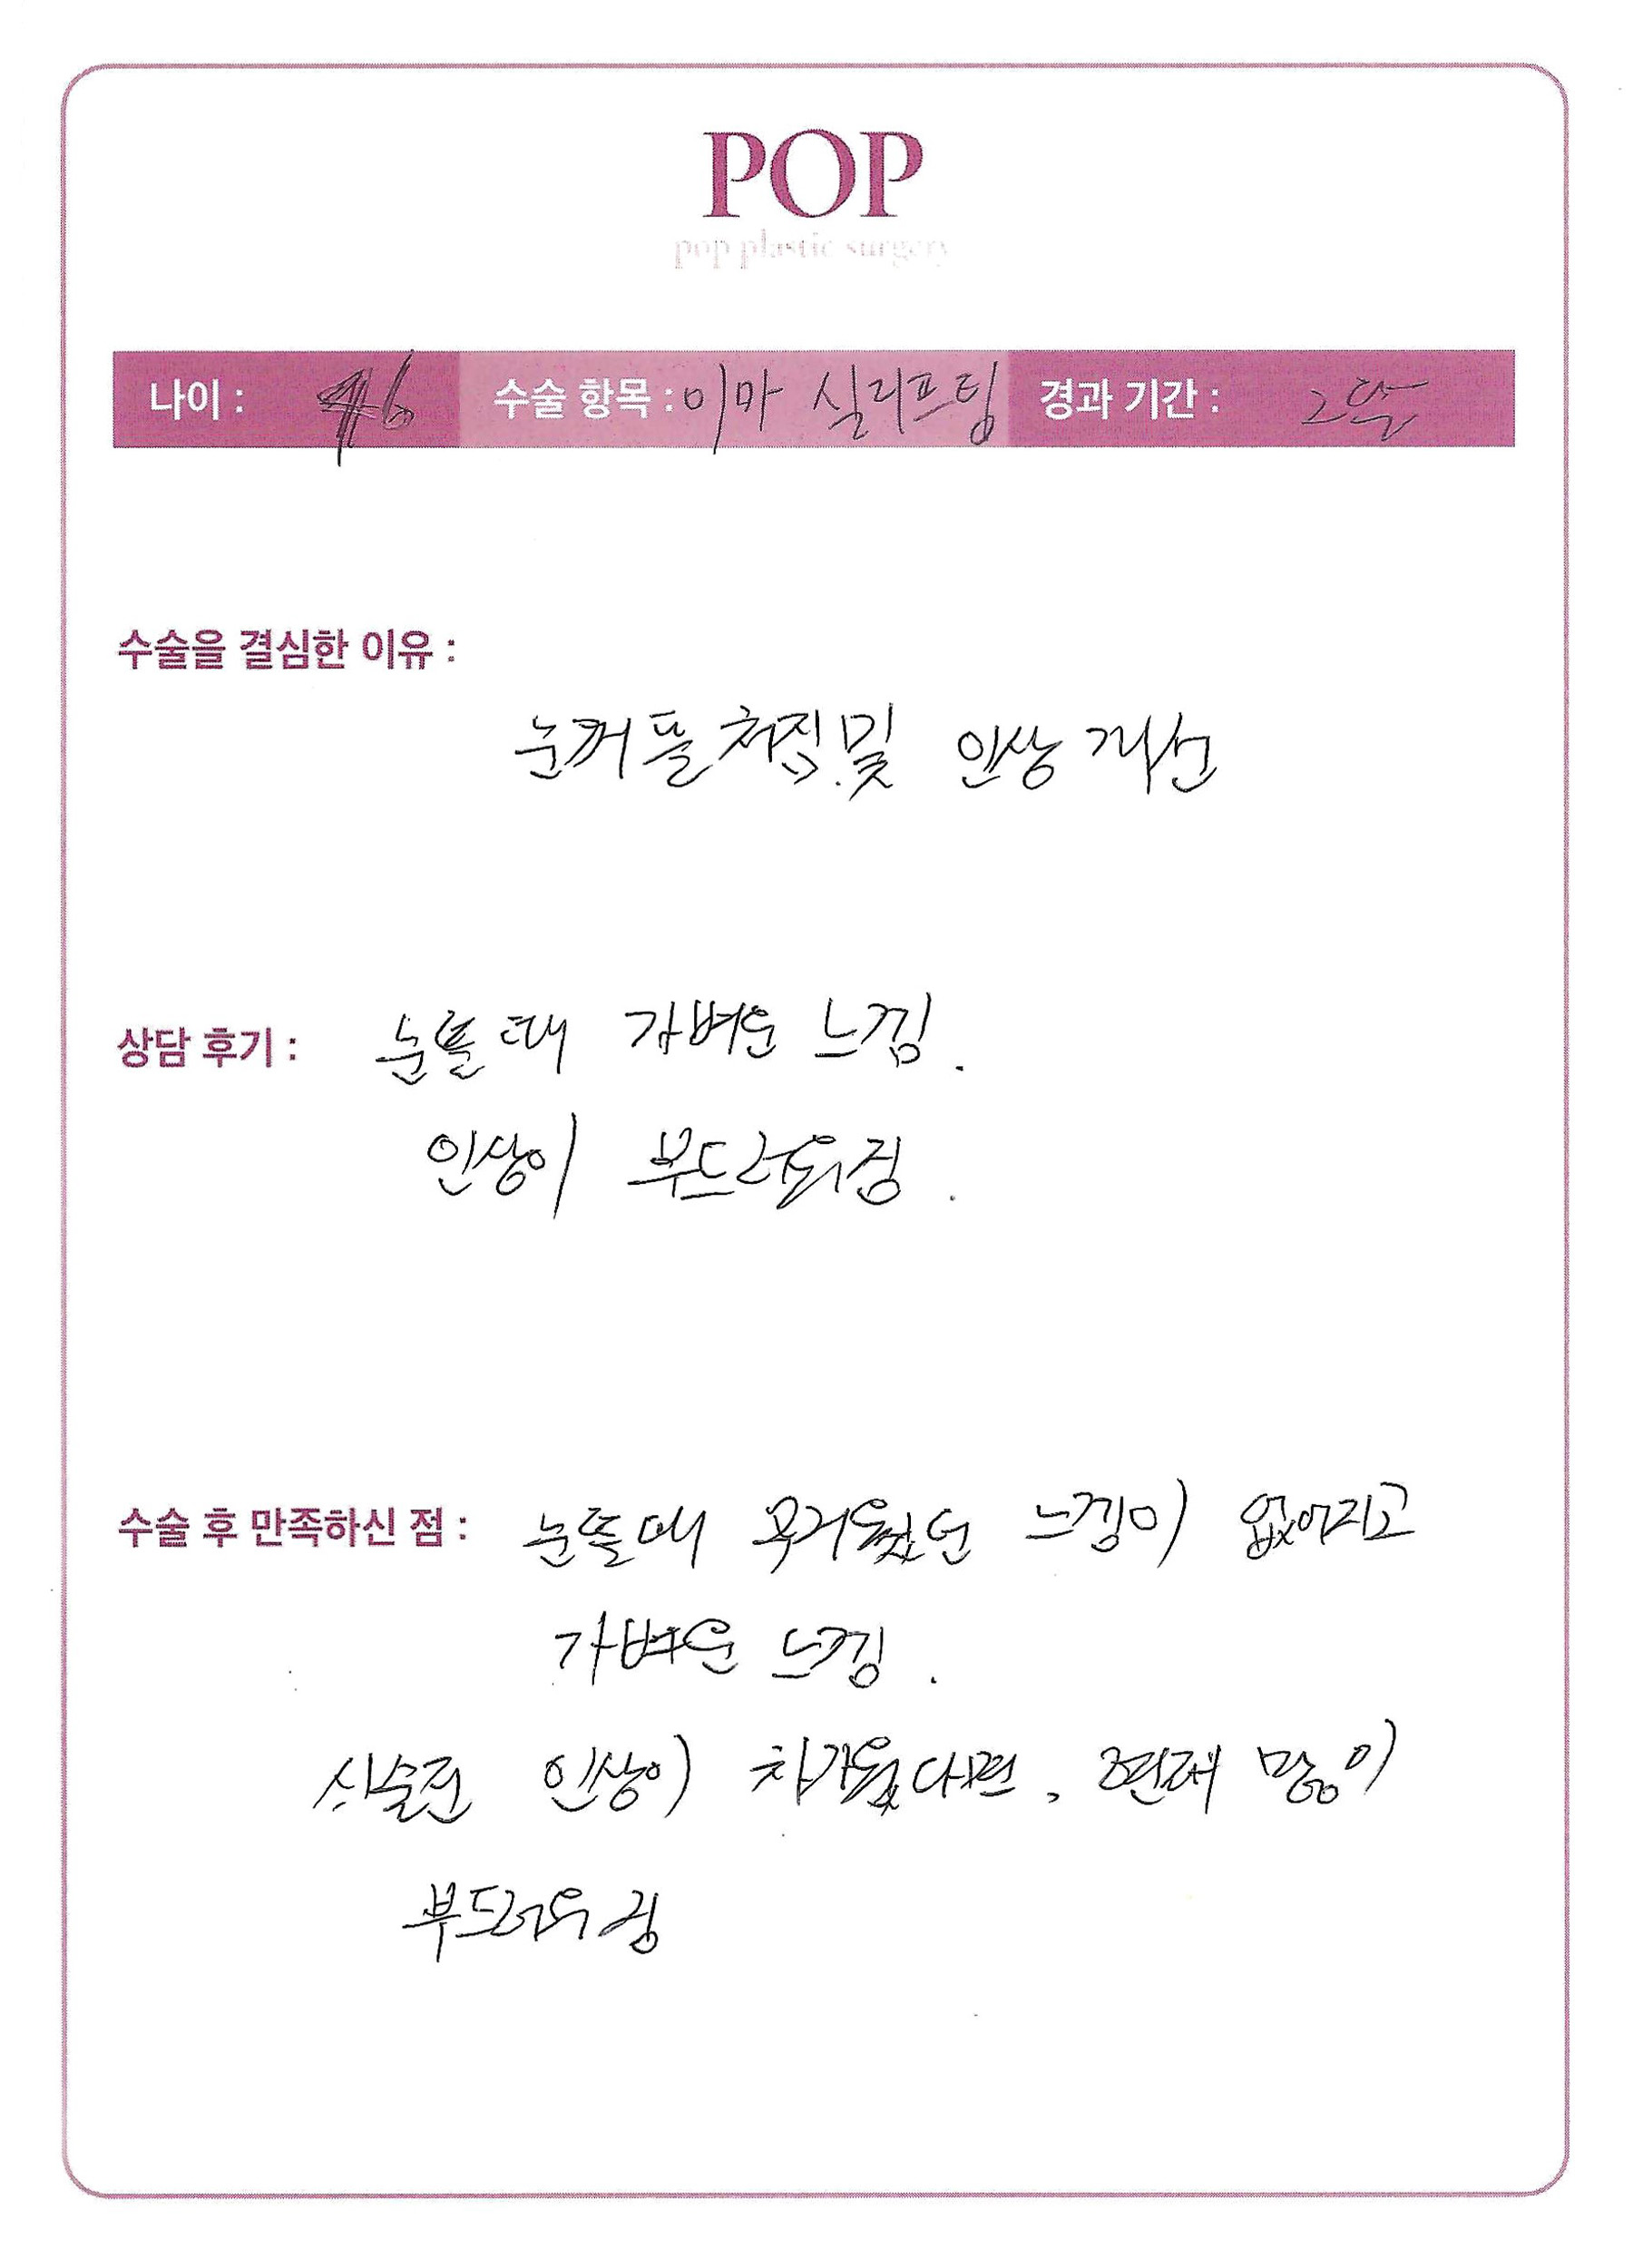 POP
pop plastic surgery
나이 : 46 수술 항목 : 이마 실리프팅 경과 기간 : 2주
수술을 결심한 이유 :
눈꺼플 처짐 및 인상 개선
상담 후기 : 눈뜰때 가벼운 느낌.
인상이 부드러워짐.
수술 후 만족하신 점 : 눈뜰때 무거웠던 느낌이 없어지고
가벼운 느낌.
시술전 인상이 차가웠다면, 현재 많이
부드러워짐